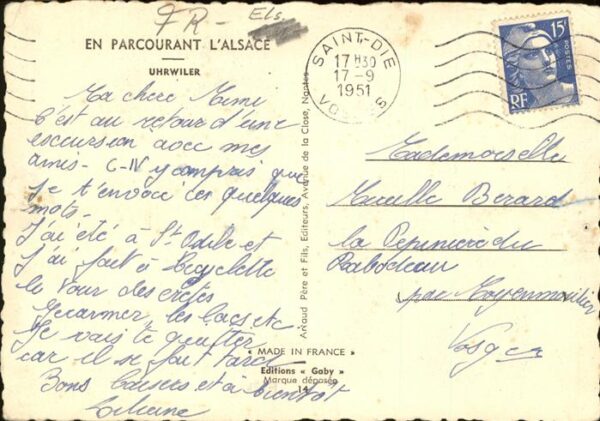 FR - Els.
EN PARCOURANT L'ALSACE
UHRWILER
SAINT-DIE
17 H30
17-9
1951
VOSGES
15F
POSTES
RF
Ma chère Mimi
C'est au retour d'une
excursion avec mes
amis - y compris que
je t'envoie ces quelques
mots.
J'ai été à St Odile et
j'ai fait à bicyclette
le tour des crêtes
Gérarmer, les lacs etc
Je vais te quitter
car il se fait tard
Bons baisers et à bientôt
Liliane
ARNAUD Père et Fils, Editeurs, Avenue de la Close, Nantes
« MADE IN FRANCE »
Editions « Gaby »
Marque déposée
14
Mademoiselle
Berard
la Pépinière du
Rabodeau
par Moyenmoutier
Vosges